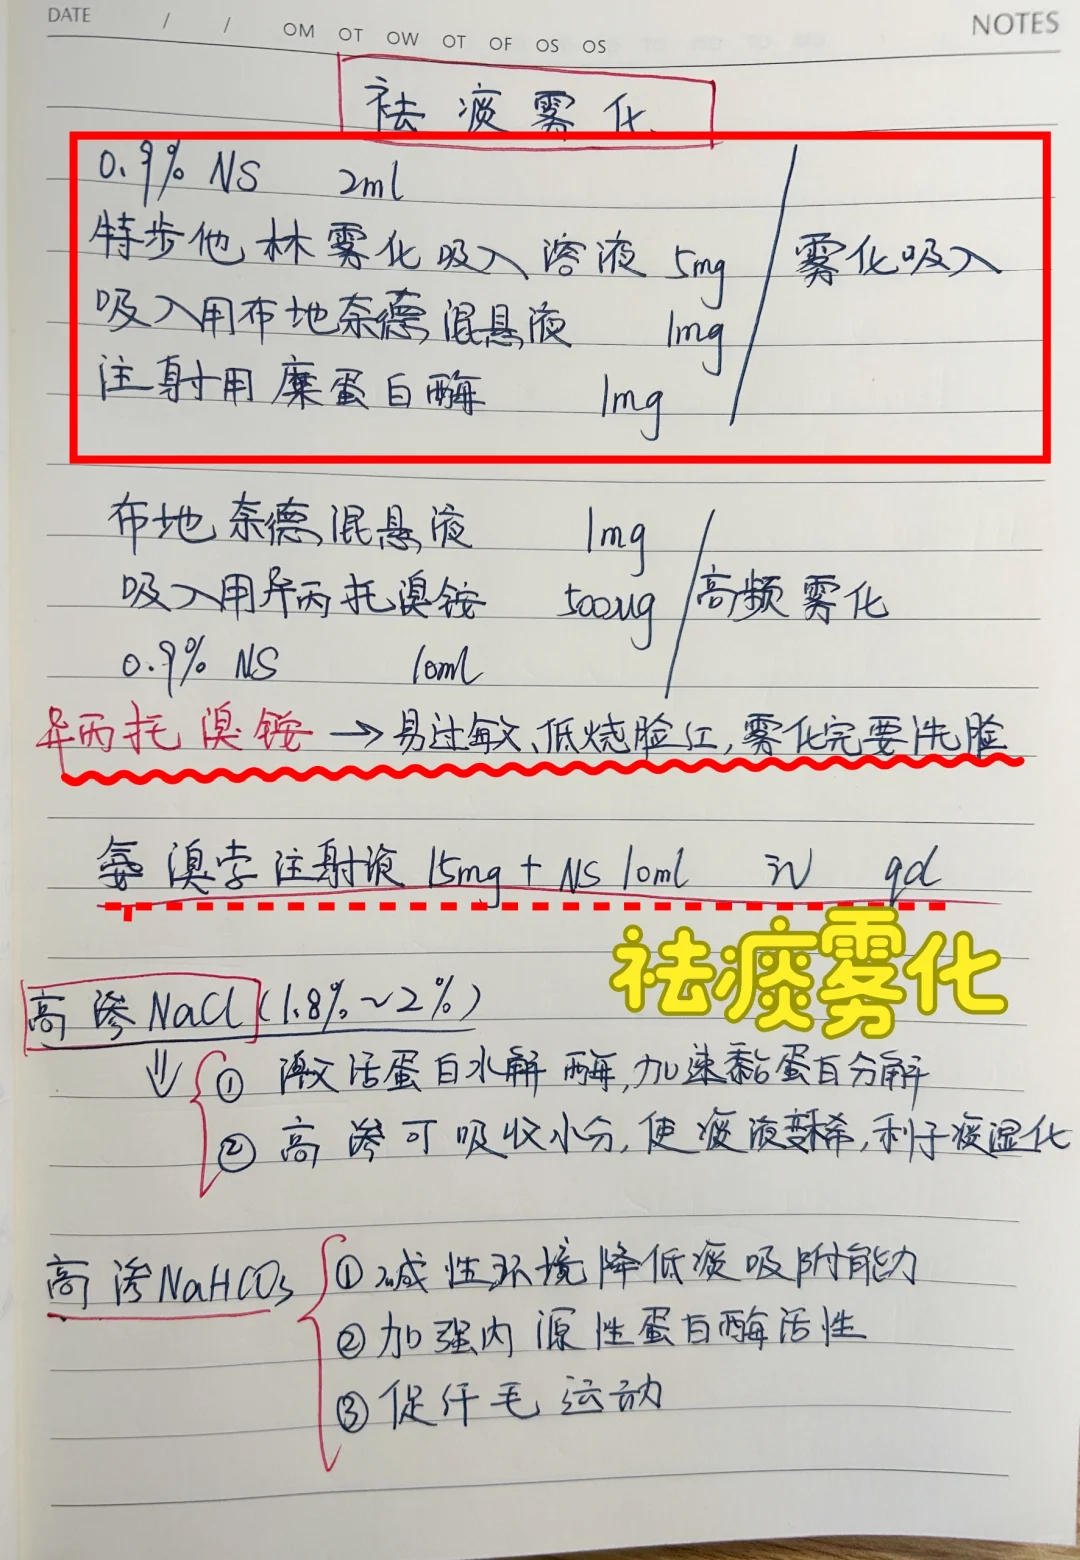 DATE / / OM OT OW OT OF OS OS NOTES
祛痰雾化
0.9% NS 2ml
特步他林雾化吸入溶液 5mg
雾化吸入
吸入用布地奈德混悬液 1mg
注射用糜蛋白酶 1mg
布地奈德混悬液 1mg
吸入用异丙托溴铵 500ug
高频雾化
0.9% NS 10ml
异丙托溴铵→易过敏、低烧脸红,雾化完要洗脸
氨溴索注射液 15mg + NS 10ml iv qd
祛痰雾化
高渗NaCl(1.8%~2%)
⇓ ① 激活蛋白水解酶,加速黏蛋白分解
② 高渗可吸收水分,使痰液变稀,利于痰湿化
高渗NaHCO3 ①碱性环境降低痰吸附能力
②加强内源性蛋白酶活性
③促纤毛运动